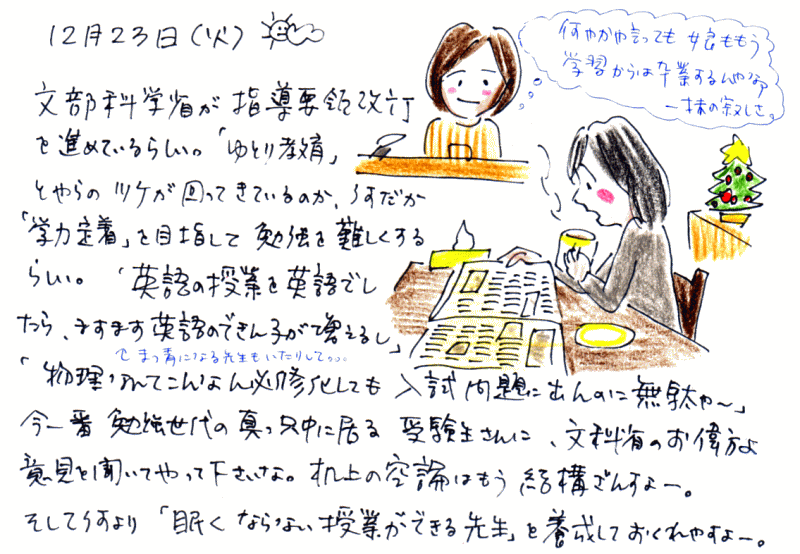 12月23日(火)
何やかや言っても 娘ももう
学習からは卒業するんやなァ
一抹の寂しさ。
文部科学省が 指導要領改訂
を進めているらしい。「ゆとり教育」
とやらの ツケが 回ってきているのか、何だか
「学力定着」を目指して 勉強を難しくする
らしい。「英語の授業を英語でし
たら、ますます英語のできん子が増えるし」
でまっ青になる先生もいたりして。。。
「物理なんてこんなん必修化しても 入試問題に出んのに無駄や〜」
今一番 勉強世代の真っ只中に居る 受験生さんに、文科省のお偉方よ
意見を聞いてやって下さいな。机上の空論はもう 結構ざんすよー。
そして何より「眠くならない授業ができる先生」を養成しておくれやすよー。